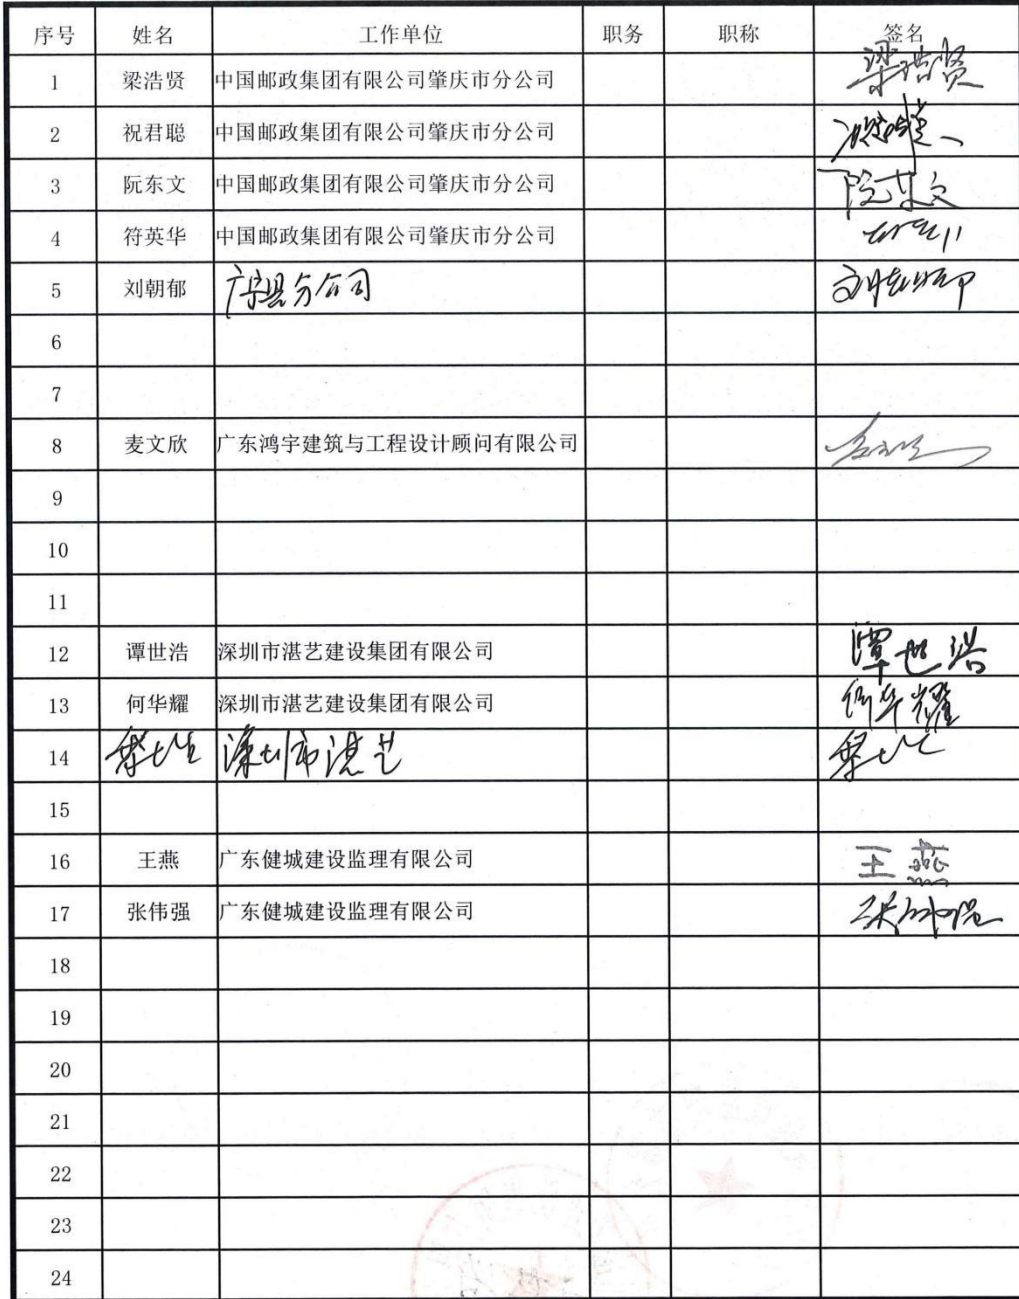 序号 姓名 工作单位 职务 职称 签名
1 梁浩贤 中国邮政集团有限公司肇庆市分公司 梁浩贤
2 祝君聪 中国邮政集团有限公司肇庆市分公司
3 阮东文 中国邮政集团有限公司肇庆市分公司 阮东文
4 符英华 中国邮政集团有限公司肇庆市分公司
5 刘朝郁 广宁县分公司 刘朝郁
6
7
8 麦文欣 广东鸿宇建筑与工程设计顾问有限公司
9
10
11
12 谭世浩 深圳市湛艺建设集团有限公司 谭世浩
13 何华耀 深圳市湛艺建设集团有限公司 何华耀
14 深圳市湛艺
15
16 王燕 广东健城建设监理有限公司 王燕
17 张伟强 广东健城建设监理有限公司 张伟强
18
19
20
21
22
23
24